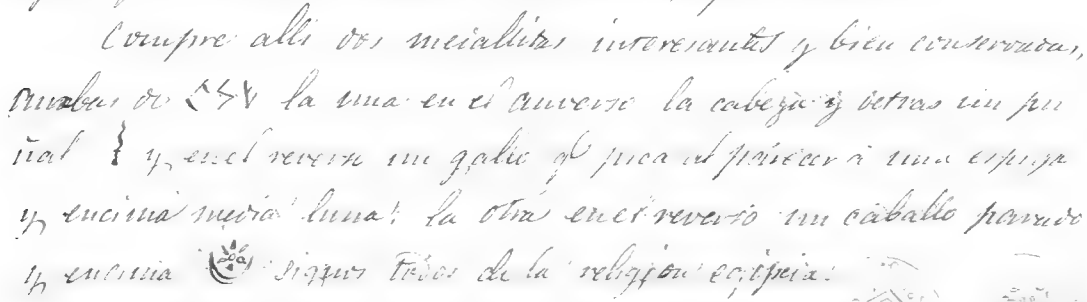 Compre alli dos meiallitas interesantes y bien conservadas,
ambas de la una en el anverso la cabeza y detras un pu
ñal y en el reverso un gallo q̃ pica al parecer á una espiga
y encima media luna: la otra en el reverso un caballo parado
y encima signos todos de la religion egipcia: